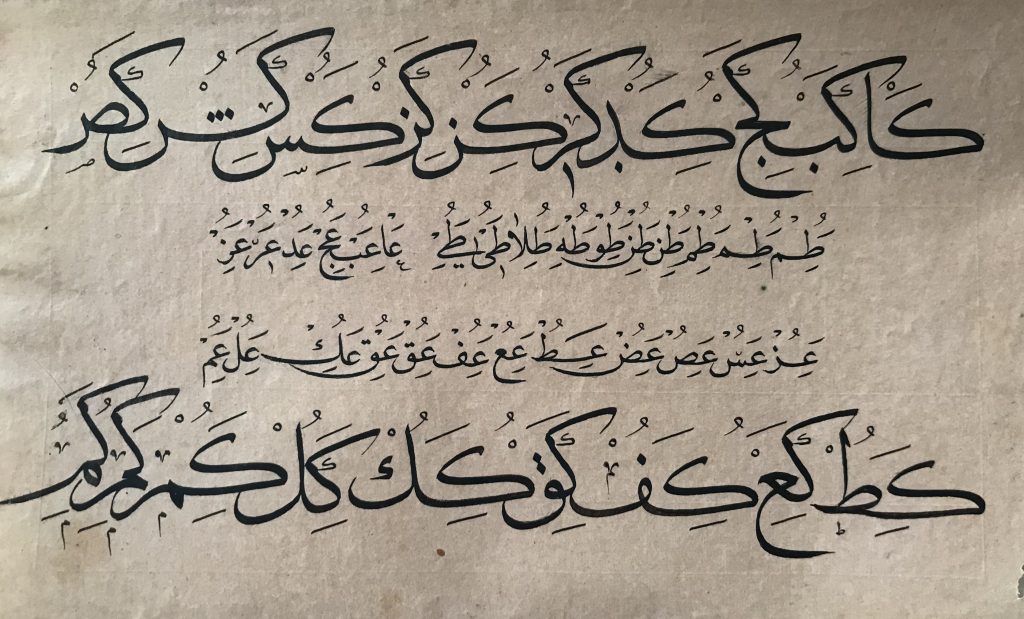 كا كب كج كد كر كز كز كس كش كص
طم طم طم طن طن طو طه طلا طى طى عا عب عج عد عر عز
عز عس عص عض عط عع عف عق عق عك عل عم
كط كع كف كق كك كل كم كم كم